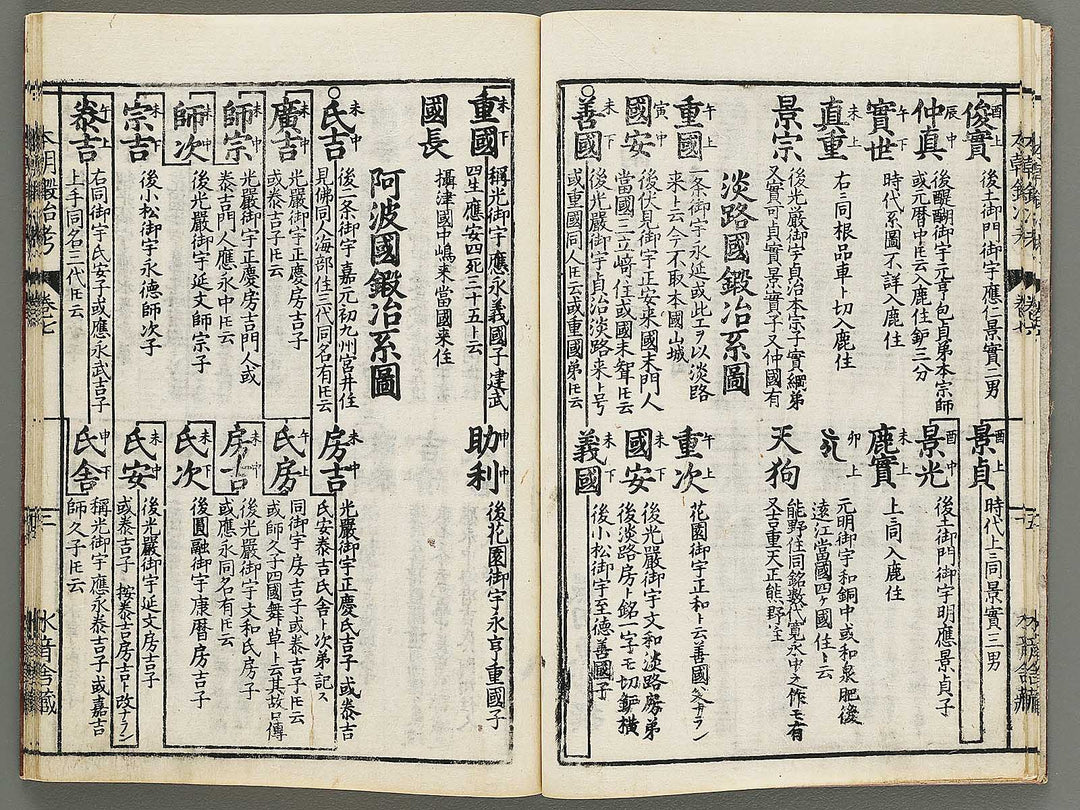 俊實 酉上
後土御門御宇應仁景實二男
仲真 辰中
後醍醐御宇元亨包貞弟本宗師
或元暦中ヒ云入鹿住鈩三分
實世 午下
時代系圖不詳入鹿住
直重 未上
右ニ同根品車ト切入鹿住
景宗
後光嚴御宇貞治本宗子實綱弟
又實可貞實景實子又仲國有
淡路國鍛冶系圖
重國 午上
一条御宇永延或此エヲ以淡路
来ト云今不取本國山城
國安 寅中
後伏見御宇正安来國末門人
當國三立﨑住或國末聟ヒ云
善國 未下
後光嚴御宇貞治淡路来ト号
或重國同人ヒ云或重國弟ヒ云
景貞 酉上
時代上ニ同景實三男
景光 酉中
後土御門御宇明應景貞子
鹿實 未上
上ニ同入鹿住
卯上
元明御宇和銅中或和泉肥後
遠江當國四ヶ國住ト云
天狗
能野住同銘数代寛永中之作モ有
又吉重天正熊野住
重次 午上
花園御宇正和ト云善國
國安 未下
後光嚴御宇文和淡路房弟
後淡路房ト銘一字モ切鈩横
義國 未下
後小松御宇至德善國子
重國 未下
稱光御宇應永義國子建武
四生應安四死三十五上云
國長
攝津國中嶋来當國来住
阿波國鍛冶系圖
氏吉 未中
後二条御宇嘉元初九州宮井住
見佛同人海部住三代同名有ヒ云
廣吉 未中
光嚴御宇正慶房吉子
或泰吉子ヒ云
師宗 未中
光嚴御宇正慶房吉門人或
泰吉門人應永中ヒ云
師次 未中
後光嚴御宇延文師宗子
宗吉 未下
後小松御宇永德師次子
泰吉 午上
右同御宇氏安子或應永武吉子
上手同名三代ヒ云
助利 申中
後花園御宇永亨重國子
房吉 未中
光嚴御宇正慶氏吉子或泰吉
氏安泰吉氏舎ト次第ニ記ス
氏房 午上
同御宇房吉子或泰吉子ヒ云
或師久子四國舞草ト云其故ニ傳
房吉 未中
後光嚴御宇文和氏房子
或應永同名有ヒ云
氏次 未下
後圓融御宇康暦房吉子
氏安 未中
後光嚴御宇延文房吉子
或泰吉子 按泰吉房吉ト改ナラン
氏舎 申下
稱光御宇應永泰吉子或嘉吉
師久子ヒ云
本朝鍛冶考
卷七
三
水音舎藏